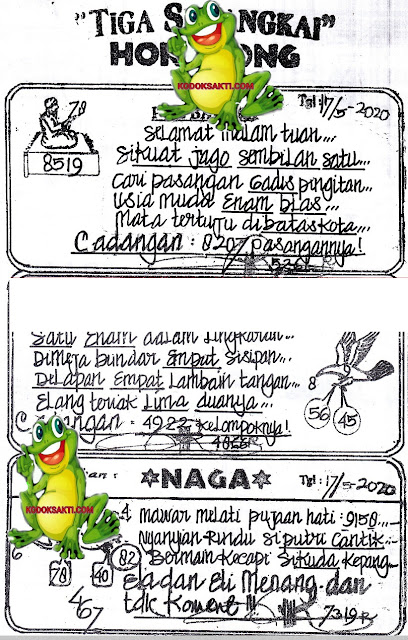 "TIGA S NGKAI"
HON ONG
KODOKSAKTI.COM
Tgl: 17/5-2020
78
8519
Selamat malam tuan...
Sikuat jago sembilan satu...
Cari pasangan Gadis pingitan...
Usia muda Enam blas...
Mata tertuju dibatas kota...
Cadangan : 8207 pasangannya!
Satu Enam dalam lingkaran...
Dimeja bundar Empat sisipan...
Delapan Empat lambain tangan...
Elang teriak Lima duanya...
8
56 45
C ngan : 4922 kelompoknya!
KODOKSAKTI.COM
an :
NAGA
Tgl: 17/5-2020
4 mawar melati pujaan hati : 9158...
Nyanyian Rindu si putri Cantik...
82 Bermain Kecapi Sikuda Kepang...
6
78 40
467
Badan Bli Menang dan
tdk Koment !!!
7319 R